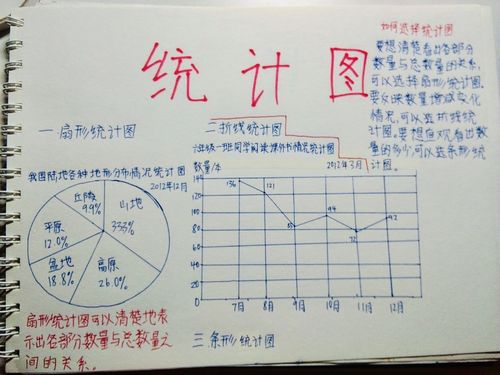 统计图
如何选择统计图
要想清楚看出各部分
数量与总数量的关系,
可以选择扇形统计图.
要反映数量增减变化
情况,可以选折线统
计图.要想直观看出数
量的多少,可以选条形统
计图.
一 扇形统计图
我国陆地各种地形分布情况统计图
2012年12月
丘陵
9.9%
山地
33.3%
平原
12.0%
盆地
18.8%
高原
26.0%
扇形统计图可以清楚地表
示出各部分数量与总数量之
间的关系.
二 折线统计图
六年级一班同学阅读课外书情况统计图
数量/本
2012年3月
140
120
100
80
60
40
20
0
136
121
85
94
72
92
7月
8月
9月
10月
11月
12月
三 条形统计图